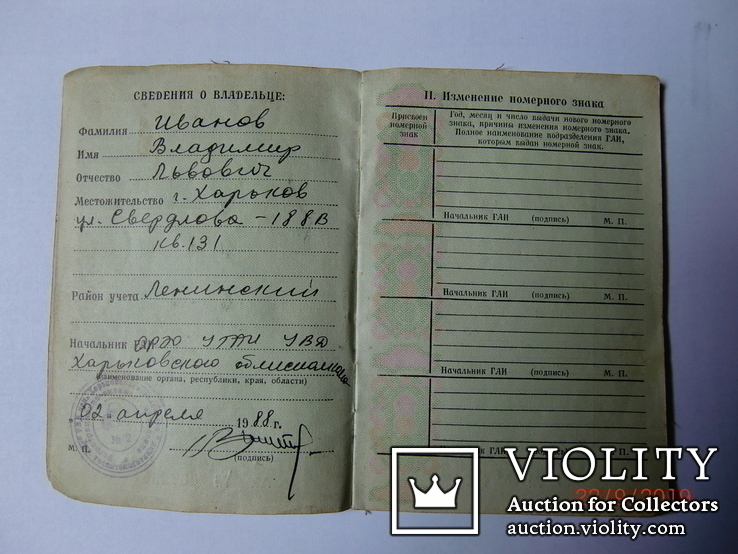 СВЕДЕНИЯ О ВЛАДЕЛЬЦЕ:
Фамилия Иванов
Имя Владимир
Отчество Львович
Местожительство г. Харьков
ул. Свердлова - 188В
кв. 131
Район учета Ленинский
Начальник ГАИ ОРЭО УГАИ УВД
Харьковского облисполкома
(наименование органа, республики, края, области)
„02" апреля 1988 г.
М. П.
(подпись)
II. Изменение номерного знака
Присвоен номерной знак
Год, месяц и число выдачи нового номерного
знака, причины изменения номерного знака.
Полное наименование подразделения ГАИ,
которым выдан номерной знак.
Начальник ГАИ (подпись) М. П.
Начальник ГАИ (подпись) М. П.
Начальник ГАИ (подпись) М. П.
Начальник ГАИ
VIOLITY
Auction for Collectors
auction.violity.com